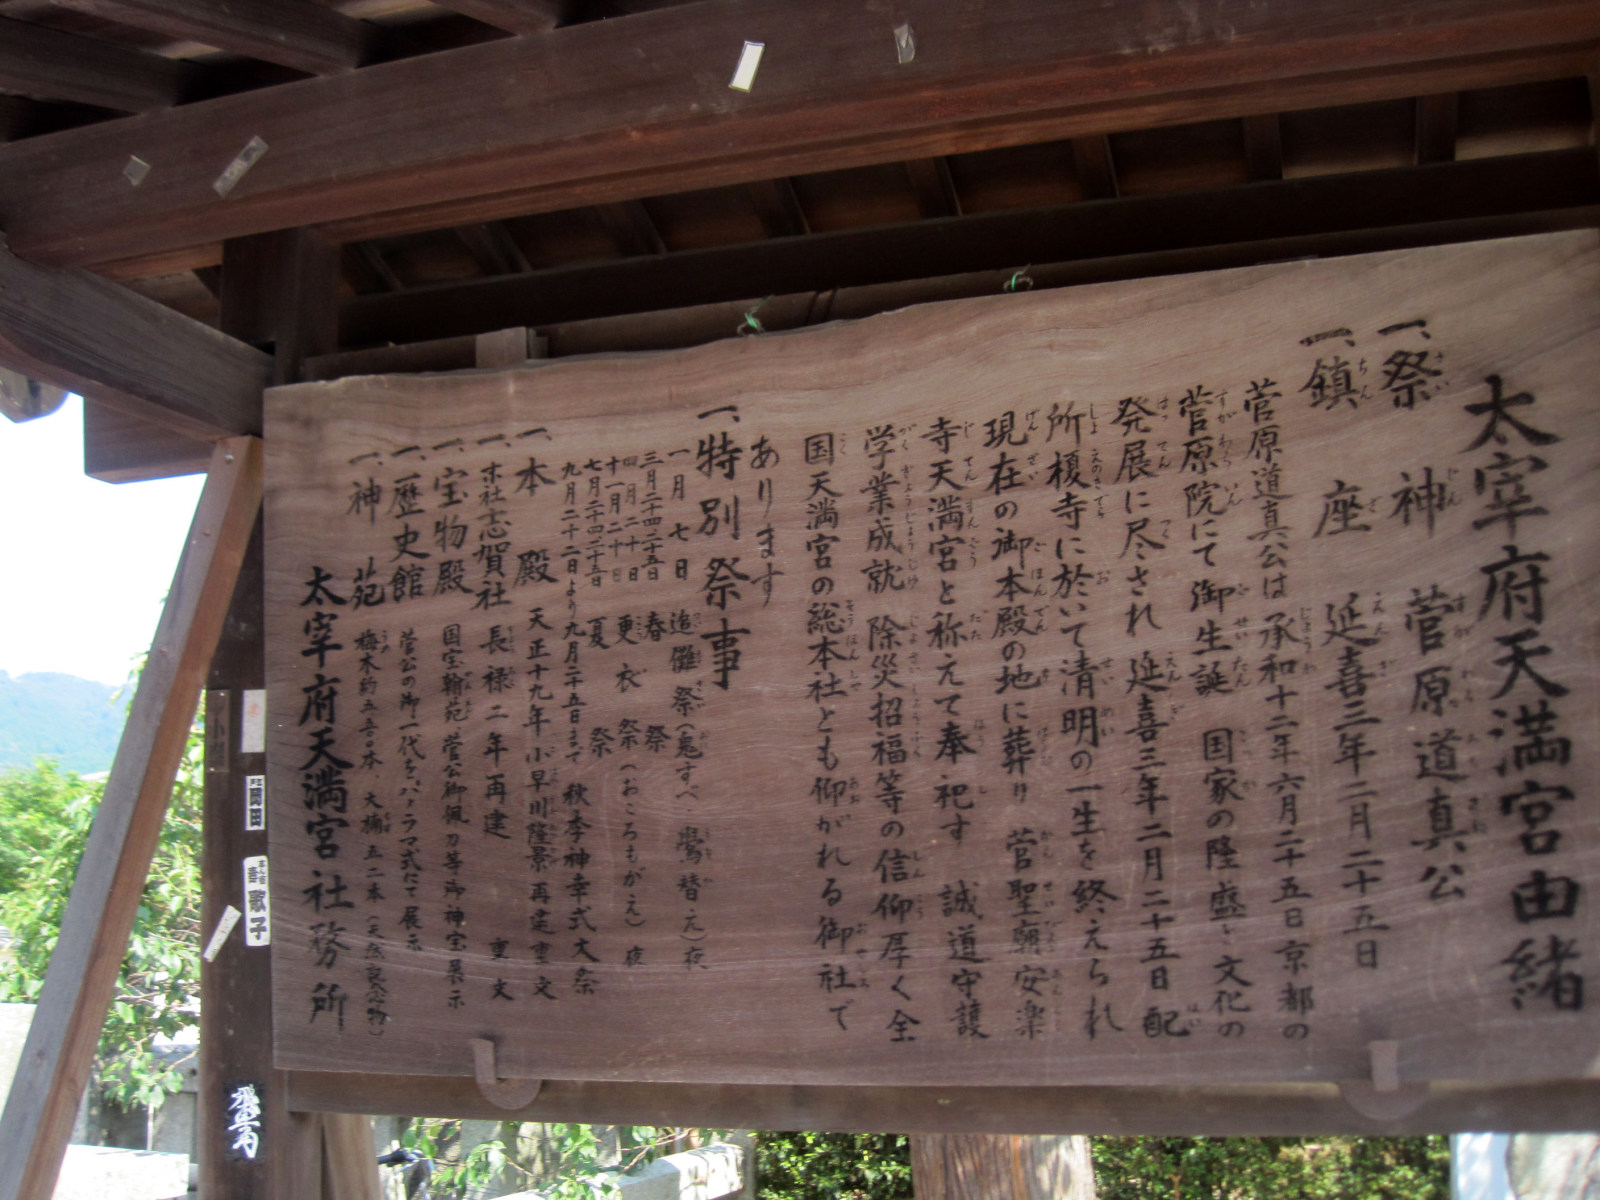 太宰府天満宮由緒
一、祭神 菅原道真公
一、鎮座 延喜三年二月二十五日
菅原道真公は承和十二年六月二十五日京都の
菅原院にて御生誕 国家の隆盛と文化の
発展に尽され 延喜三年二月二十五日 配
所榎寺に於いて清明の一生を終えられ
現在の御本殿の地に葬り 菅聖廟 安楽
寺天満宮と称えて奉祀す 誠道守護
学業成就 除災招福等の信仰厚く全
国天満宮の総本社とも仰がれる御社で
あります
一、特別祭事
一月 七日 追儺祭(鬼すべ 鷽替え)夜
三月二十四二十五日 春祭
四月二十日
十一月二十日 更衣祭(おころもがえ)夜
七月二十四二十五日 夏祭
九月二十二日より九月二十五日まで 秋季神幸式大祭
一、本殿 天正十九年 小早川隆景再建 重文
一、末社志賀社 長禄二年再建 重文
一、宝物殿 国宝翰苑 菅公御佩刀等御神宝展示
一、歴史館 菅公の御一代をパノラマ式にて展示
一、神苑 梅木約五、五〇〇本、大樟五二本(天然記念物)
太宰府天満宮社務所
岡田
敬子